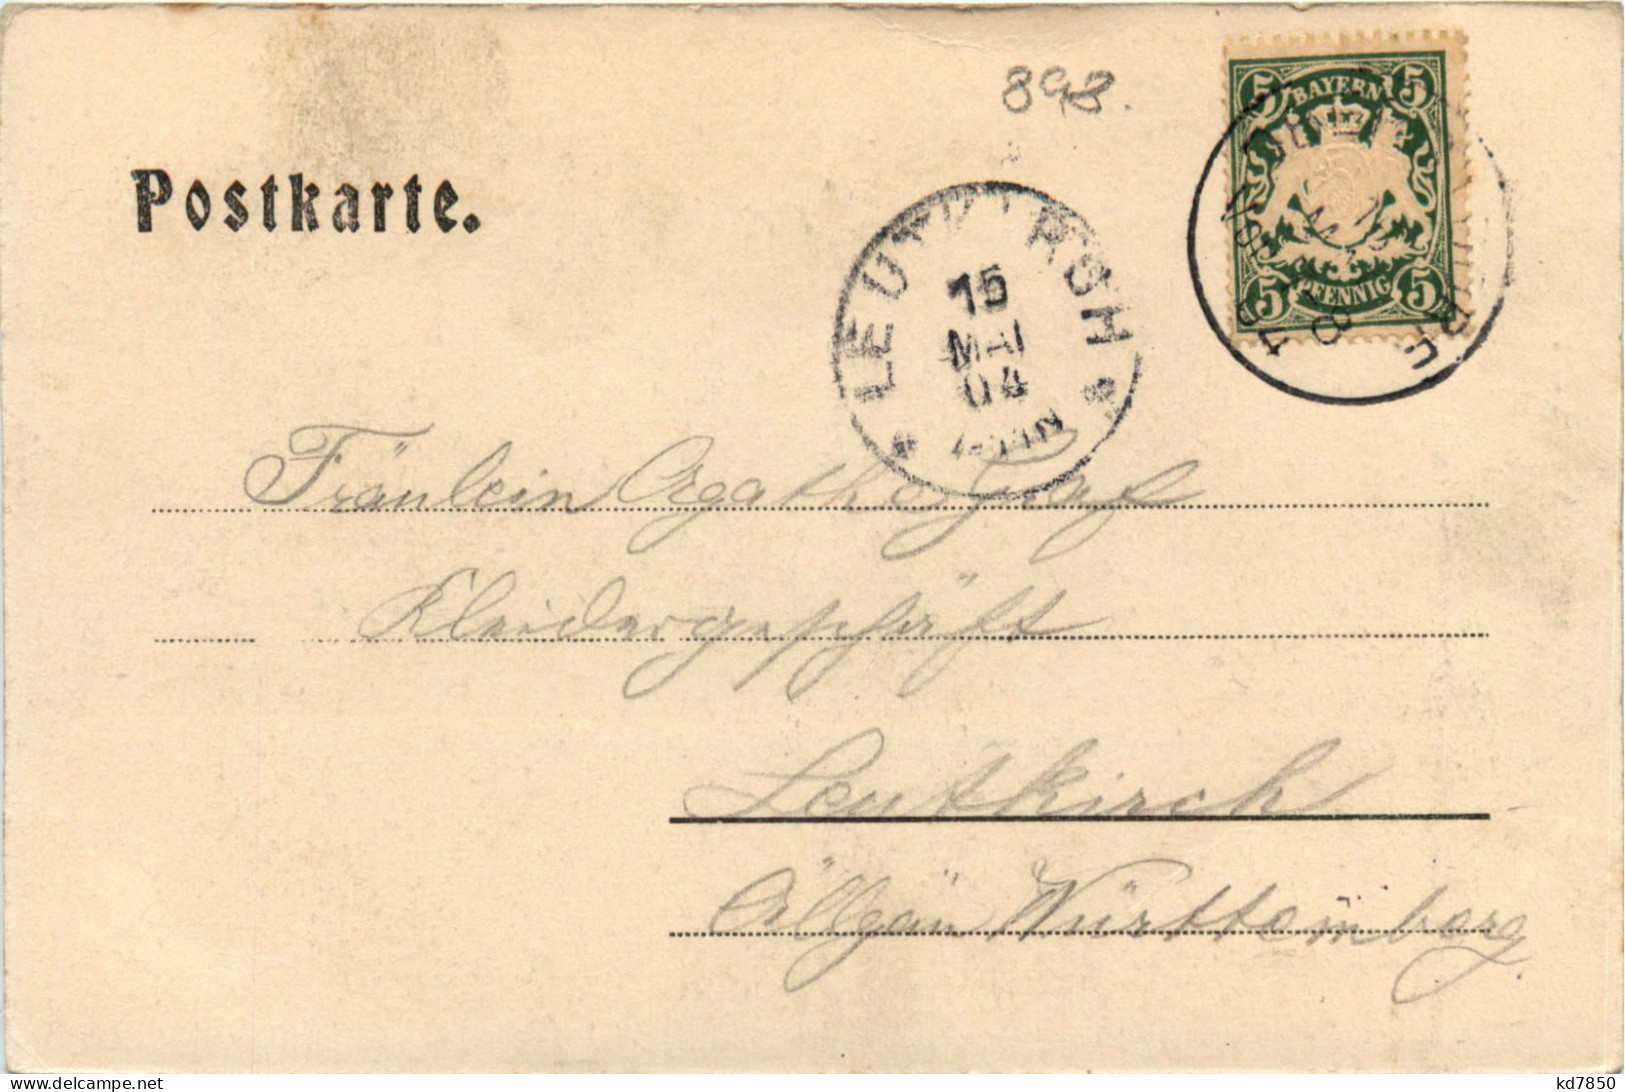 893.
5 BAYERN 5
5 PFENNIG 5
Postkarte.
LEUTKIRCH
15
MAI
04
Fräulein Agatha Graf
Kleidergeschäft
Leutkirch
Allgäu Württemberg.
delcampe.net
kd7850